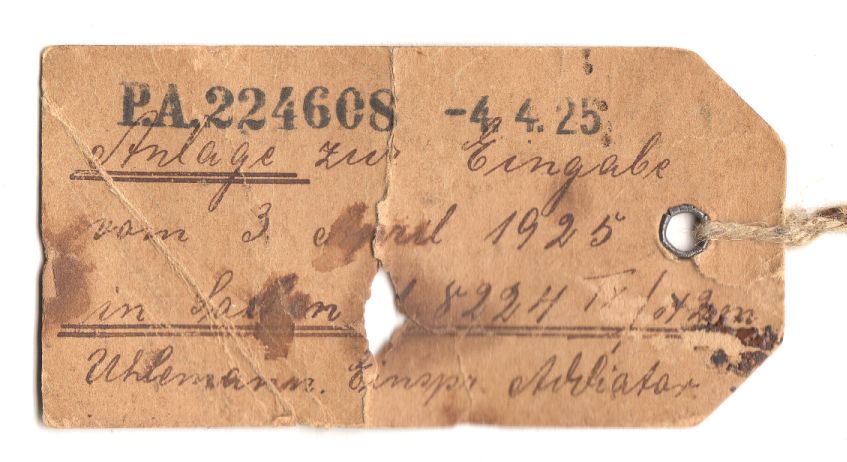 P.A.224608 -4.4.25
Anlage zur Eingabe
vom 3. April 1925
in Sachen 8224
Uhlemann. Einspr. Addiator